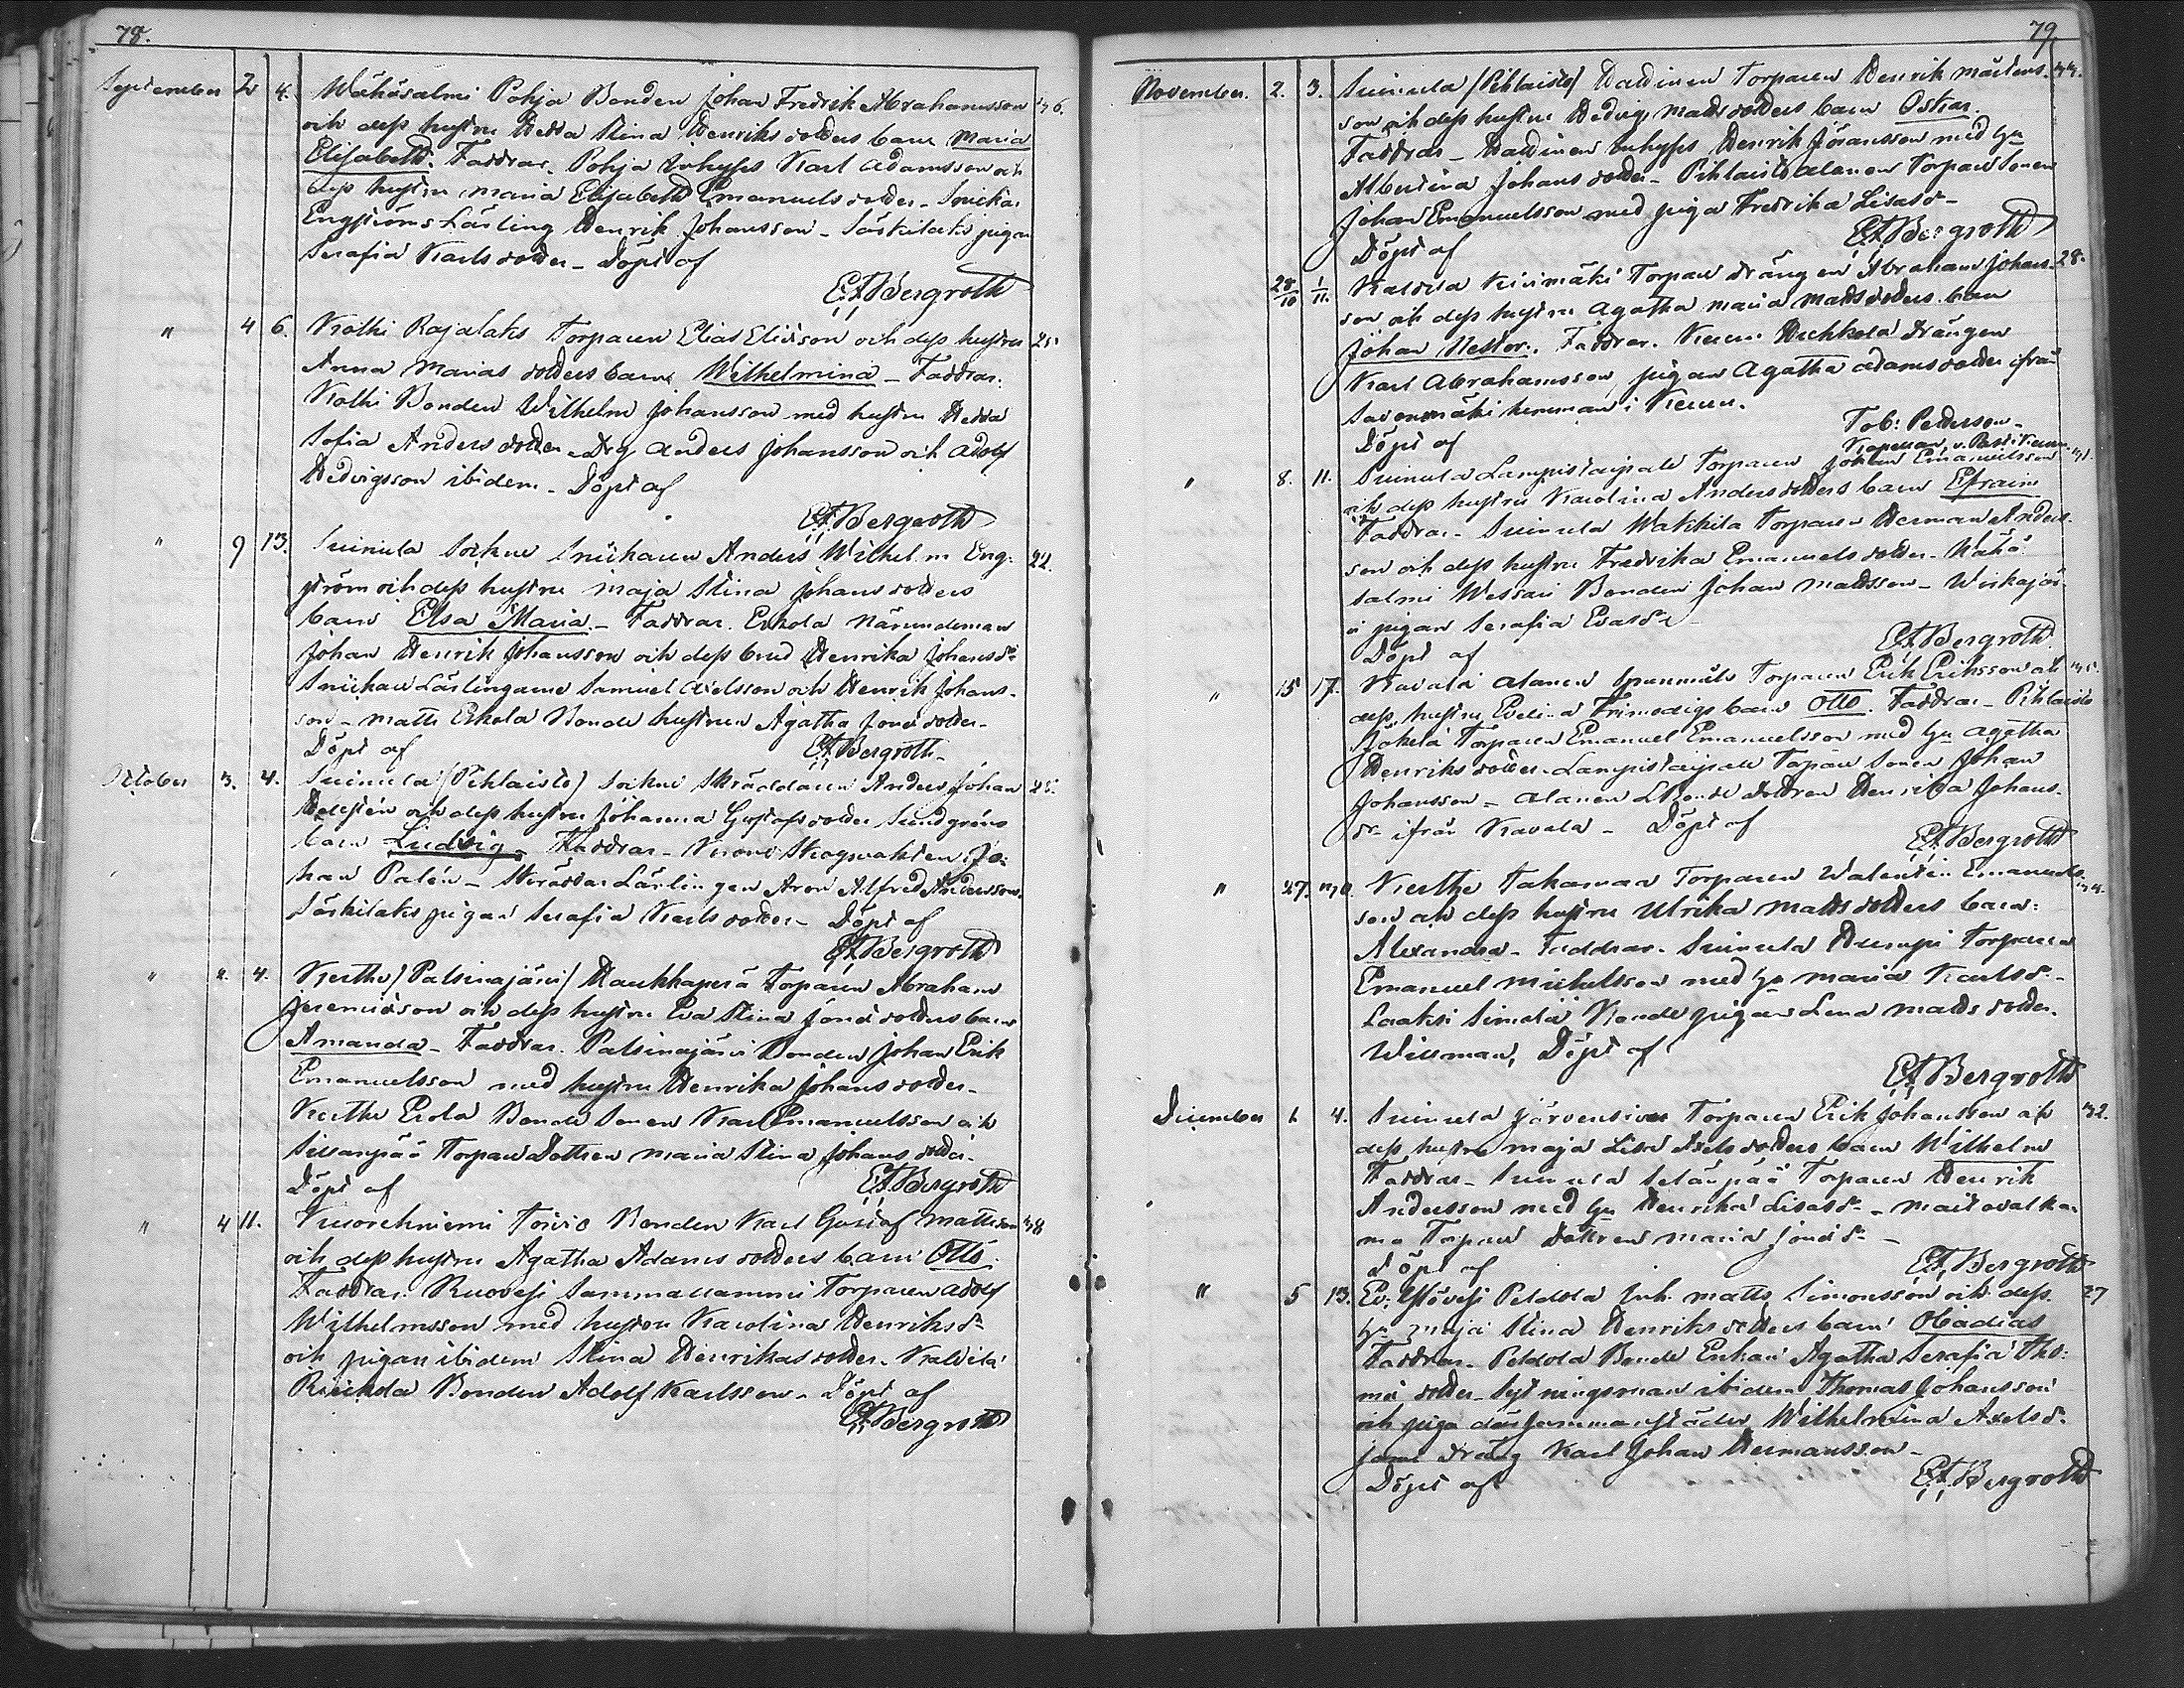 78.
September 2 4. Wähäsalmi Pohja Bonden Johan Fredrik Abrahamsson 36.
och dess hustru Hedda Stina Henriksdotters barn Maria
Elisabeth. Faddrar. Pohja Inhyses Karl Adamsson och
dess hustru Maria Elisabeth Emanuelsdotter - Snickar
Engströms Lärling Henrik Johansson - Särkilaks pigan
Serafia Karlsdotter - Döpt af
E.A. Bergroth
" 4 6. Kolhi Rajalaks Torparen Elias Eliæson och dess hustru 25.
Anna Mariasdotters barn Wilhelmina - Faddrar.
Kolhi Bonden Wilhelm Johansson med hustru Hedda
Sofia Andersdotter - Drg Anders Johansson och Adolf
Hedvigsson ibidem - Döpt af
E.A. Bergroth
" 9 13. Suinula Sockne Snickaren Anders Wilhelm Eng- 22.
ström och dess hustru Maja Stina Johansdotters
barn Elsa Maria. - Faddrar. Erkola Nämndeman
Johan Henrik Johansson och dess brud Henrika Johansdr
Snickare Lärlingarne Samuel Axelsson och Henrik Johans-
son - Matts Eskola Bonde hustrun Agatha Jonædotter -
Döpt af E.A. Bergroth
October 3. 4. Suinula (Pihlaisto) Sockne Skräddaren Anders Johan 25.
och dess hustru Johanna Gustafsdotter Sundgréns
barn Ludvig - Faddrar - Krono Skogvakten Jo-
han Palén - Skräddar Lärlingen Aron Alfred Andersson.
Särkilaks pigan Serafia Karlsdotter - Döpt af
E.A. Bergroth
" 2. 4. Keuthe (Palsinajärvi) Haukkaperä Torparen Abraham
Jeremiæson och dess hustru Eva Stina Jonædotters barn
Amanda - Faddrar. Palsinajärvi Bonden Johan Erik
Emanuelsson med hustru Henrika Johansdotter -
Keuthe Erola Bonde Sonen Karl Emanuelsson och
Torpare Dottren Maria Stina Johansdotter.
Döpt af E.A. Bergroth
" 4 11. Toivio Bonden Karl Gustaf Mattsson 38
och dess hustru Agatha Adamsdotters barn Otto.
Faddrar. Ruovesi Sammallammi Torparen Adolf
Wilhelmsson med hustru Karolina Henriksdr
och pigan ibidem Stina Henrikasdotter. Kaldila
Bonden Adolf Karlsson - Döpt af
E.A. Bergroth
79
November. 2. 3. Suinula (Pihlaisto) Haldinen Torparen Henrik Mårtens- 34.
son och dess hustru Hedvig Mattsdotters barn Oskar.
Faddrar - Haldinen Inhyses Henrik Göransson med hu
Albertina Johansdotter - Pihlaisto Alanen Torpare Sonen
Johan Emanuelsson med piga Fredrika Lisasdr -
Döpt af E.A. Bergroth
28/10 1/11. Kaldila Kivimäki Torpare drängen Abraham Johans- 28.
son och dess hustru Agatha Maria Mattsdotters barn
Johan Nestor. Faddrar. Keuru Huhkola drängen
Karl Abrahamsson, pigan Agatha Adamsdotter ifrån
Savonmäki hemman i Keuru.
Döpt af Tob: Pederson -
Kapellan v. Past. i Keuru
" 8. 11. Suinula Lampistaipale Torparen Johan Emanuelsson 31.
och dess hustru Karolina Andersdotters barn Efraim
Faddrar - Suinula Wakkila Torparen Herman Anders-
son och dess hustru Fredrika Emanuelsdotter - Wähä-
salmi Wessari Bonden Johan Mattsson - Wirkajär-
vi pigan Serafia Evasdr -
Döpt af E.A. Bergroth
" 15 17. Kavala Alanen Spannmåls Torparen Erik Eriksson och 35.
dess hustru Evelina Frimodigs barn Otto. Faddrar - Pihlaisto
Jokela Torparen Emanuel Emanuelsson med hu Agatha
Henriksdotter. Lampistaipale Torpare Sonen Johan
Johansson - Alanen Bonde Dottren Henrika Johans-
dr ifrån Kavala - Döpt af E.A. Bergroth
" 27. 30. Keuthe Takamaa Torparen Walentin Emanuels- 34.
son och dess hustru Ulrika Mattsdotters barn:
Alexandra - Faddrar. Suinula Humpi Torparen
Emanuel Michelsson med hu Maria Karlsdr -
Laaksi Simola Bonde pigan Lena Mattsdotter
Willman, Döpt af
E.A. Bergroth
December 1. 4. Suinula Järvensivu Torparen Erik Johansson och 32.
dess hustru Maja Lisa Axelsdotters barn Wilhelm
Faddrar - Suinula Selänpää Torparen Henrik
Andersson med hu Henrika Lisasdr - Maitovalka-
ma Torpare dottren Maria Jonædr -
Döpt af E.A. Bergroth
" 5 13. Ev: Ylöwesi Peldola Inh. Matts Simonsson och dess 27
hu Maja Stina Henriksdotters barn Obadias
Faddrar. Peldola Bonde Enkan Agatha Serafia Tho-
mædotter - Sytningsman ibidem Thomas Johansson
och piga därsammastädes Wilhelmina Axelsdr
samt dräng Karl Johan Hermansson -
Döpt af E.A. Bergroth